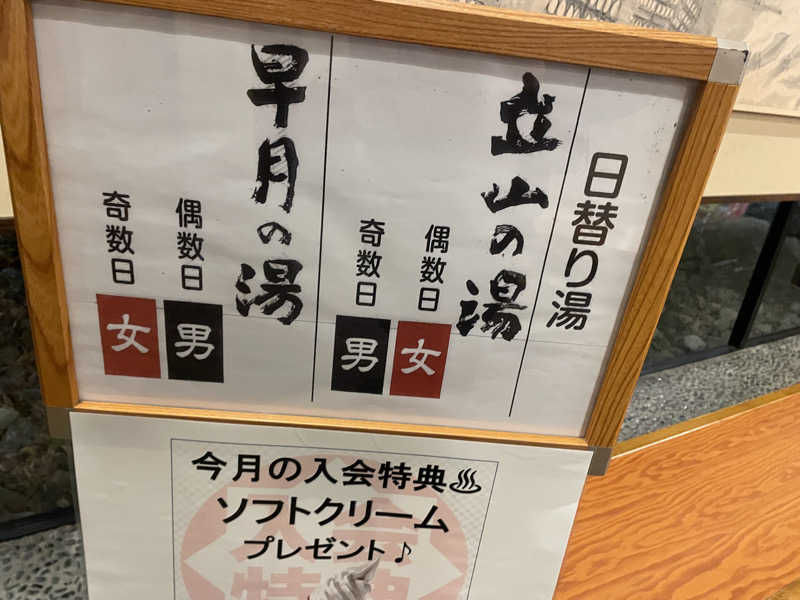 日替り湯
立山の湯
偶数日
女
奇数日
男
早月の湯
偶数日
男
奇数日
女
今月の入会特典♨
ソフトクリーム
プレゼント♪
入会
特典